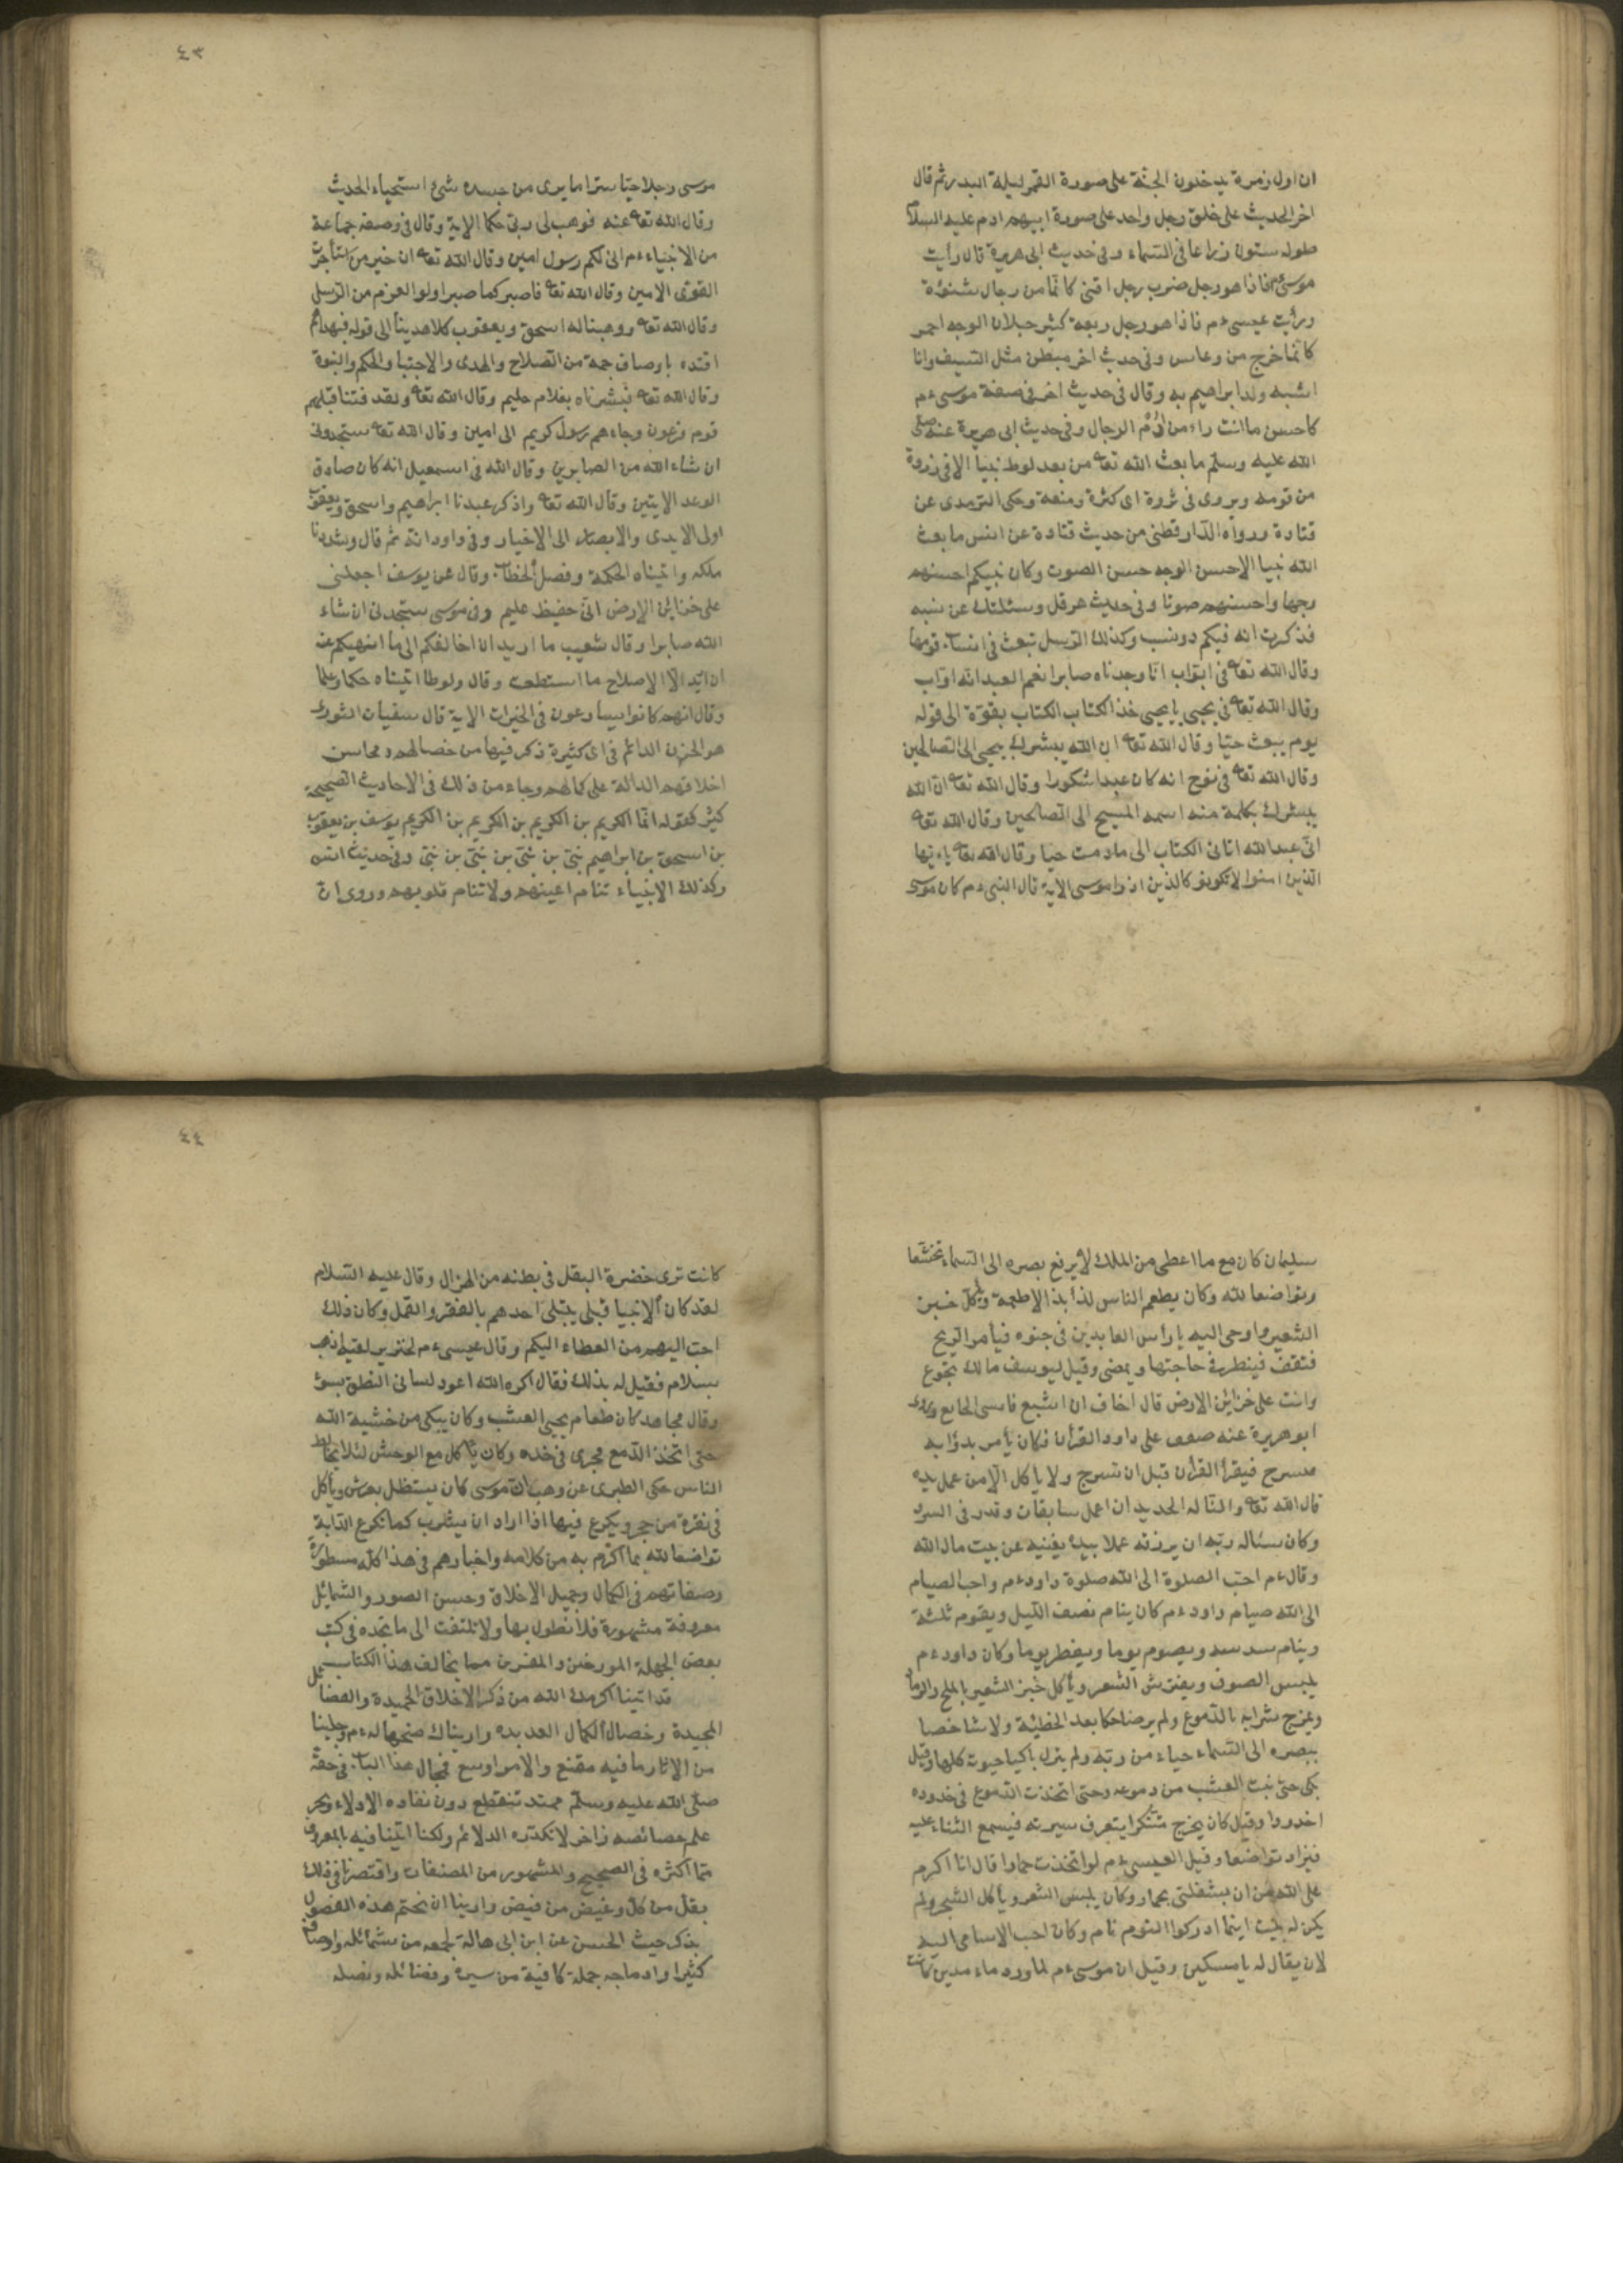 ان اول زمرة يدخلون الجنة على صورة القمر ليلة البدر ثم قال
اخر الحديث على خلق رجل واحد على صورة ابيهم ادم عليه السلام
طوله ستون ذراعا فى السماء وفى حديث ابى هريرة قال رأيت
موسى فاذا هو رجل ضرب رجل اقنى كانما من رجال شنؤة
ورأيت عيسى ءم فاذا هو رجل ربعة كثير خيلان الوجه احمر
كانما خرج من وعاس وفى حديث اخر مبطن مثل السيف وانا
اشبه ولد ابراهيم به وقال فى حديث اخر فى صفة موسى ءم
كاحسن ما انت راء من ادم الرجال وفى حديث ابى هريرة عنه صلى
الله عليه وسلم ما بعث الله تعا من بعد لوط نبيا الا فى زروة
من قومه ويروى فى ثروة اى كثرة ومنعة وحكى الترمدى عن
قتادة ورواه الدارقطنى من حديث قتادة عن انس ما بعث
الله نبيا الا حسن الوجه حسن الصوت وكان نبيكم احسنهم
وجها واحسنهم صوتا وفى حديث هرقل وسئلتك عن نسبه
فذكرت انه فيكم دو نسب وكذلك الرسل تبعث فى انساب قومها
وقال الله تعا فى ايواب انا وجدناه صابرا نعم العبد انه اواب
وقال الله تعا فى يحيى يا يحيى خذ الكتاب الكتاب بقوة الى قوله
يوم يبعث حيا وقال الله تعا ان الله يبشرك بيحيى الى الصالحين
وقال الله تعا فى نوح انه كان عبدا شكورا وقال الله تعا ان الله
يبشرك بكلمة منه اسمه المسيح الى الصالحين وقال الله تعا
انى عبد الله اتانى الكتاب الى ما دمت حيا وقال الله تعا يا ءيها
الذين امنوا لا تكونو كالذين اذوا موسى الاية قال النبى ءم كان موسى
٤٣
موسى رجلا حيا سترا ما يرى من جسده شئ استحياء الحديث
وقال الله تعا عنه فوهب لى ربى حكما الاية وقال فى وصف جماعة
من الانبياء ءم انى لكم رسول امين وقال الله تعا ان خير من استأجرت
القوى الامين وقال الله تعا فاصبر كما صبر اولو العزم من الرسل
وقال الله تعا ووهبنا له اسحق ويعقوب كلا هدينا الى قوله فبهداهم
اقتده باوصاف جمة من الصلاح والهدى والاجتبا والحكم والنبوة
وقال الله تعا فبشرناه بغلام حليم وقال الله تعا ولقد فتنا قبلهم
قوم فرعون وجاءهم رسول كريم الى امين وقال الله تعا ستجدونى
ان شاء الله من الصابرين وقال الله فى اسمعيل انه كان صادق
الوعد الايتين وقال الله تعا واذكر عبدنا ابراهيم واسحق ويعقوب
اولى الايدى والابصار الى الاخيار وفى داود انه ثم قال وشددنا
ملكه واتيناه الحكمة وفصل الخطاب وقال عن يوسف اجعلنى
على خزائن الارض انى حفيظ عليم وفى موسى ستجدنى ان شاء
الله صابرا وقال شعيب ما اريد ان اخالفكم الى ما انهيكم عنه
ان اريد الا الاصلاح ما استطعت وقال ولوطا اتيناه حكما وعلما
وقال انهم كانوا يسارعون فى الخيرات الاية قال سفيان الثورى
هو الحزن الدائم فى اى كثيرة ذكر فيها من خصالهم ومحاسن
اخلاقهم الدالة على كمالهم وجاء من ذلك فى الاحاديث الصحيحة
كثير كقوله انما الكريم بن الكريم بن الكريم بن الكريم يوسف بن يعقوب
بن اسحق بن ابراهيم نبى بن نبى بن نبى بن نبى وفى حديث انس
وكذلك الانبياء تنام اعينهم ولا تنام قلوبهم وروى ان
سليمان كان مع ما اعطى من الملك لا يرفع بصره الى السماء تخشعا
وتواضعا لله وكان يطعم الناس لذايذ الاطعمة ويأكل خبز
الشعير واوحى اليه يا رأس العابدين فى جنوه فيأمر الريح
فتقف فينظر فى حاجتها ويمضى وقيل ليوسف مالك تجوع
وانت على خزائن الارض قال اخاف ان اشبع فانسى الجايع وروى
ابو هريرة عنه صعم على داود القرأن فكان يأمر بدوابه
مسرح فيقرأ القرأن قبل ان تسرج ولا يأكل الا من عمل يده
قال الله تعا والنا له الحديد ان اعمل سابغات وقدر فى السرد
وكان سئال ربه ان يرزقه عملا بيده يغنيه عن بيت مال الله
وقال ءم احب الصلوة الى الله صلوة داود ءم واحب الصيام
الى الله صيام داود ءم كان ينام نصف الليل ويقوم ثلثة
وينام سدسه ويصوم يوما ويفطر يوما وكان داود ءم
يلبس الصوف ويفترش الشعر ويأكل خبز الشعير بالملح والرماد
ويمزج شرابه بالدموع ولم ير ضاحكا بعد الخطيئة ولا شاخصا
ببصره الى السماء حياء من ربه ولم يزل باكيا حيوته كلها وقيل
بكى حتى نبت العشب من دموعه وحتى اتخذت الدموع فى خدوده
اخدودا وقيل كان يخرج متنكرا يتعرف سيرته فيسمع الثناء عليه
فيزاد تواضعا وقيل العيسى ءم لو اتخذت حمارا قال انا اكرم
على الله من ان يشغلنى بحمار وكان يلبس الشعر ويأكل الشجر ولم
يكن له بيت اينما ادركوا النوم نام وكان احب الاسامى اليه
لان يقال له يا مسكين وقيل ان موسى ءم لما ورد ماء مدين كانت
٤٤
كانت ترى خضرة البقل فى بطنه من الهزال وقال عليه السلام
لقد كان الانبيا قبلى يبتلى احدهم بالفقر والقمل وكان ذلك
احب اليهم من العطاء اليكم وقال عيسى ءم لخنزير لقيه اذهب
بسلام فقيل له بذلك فقال اكره الله اعود لسانى النطق بسوء
وقال مجاهد كان طعام يحيى العشب وكان يبكى من خشية الله
حتى اتخذ الدمع مجرى فى خده وكان يأكل مع الوحش لئلا يخالط
الناس حكى الطبرى عن وهب ان موسى كان يستظل بعرش ويأكل
فى نقرة من حجر ويكرع فيها اذا اراد ان يشرب كما تكرع الدابة
تواضعا لله بما اكرم به من كلامه واخبارهم فى هذا كله مسطورة
وصفاتهم فى الكمال وجميل الاخلاق وحسن الصور والشمائل
معروفة مشهورة فلا نطول بها ولا تلتفت الى ما تجده فى كتب
بعض الجهلة المورخين والمفسرين مما يخالف هذا الكتاب
قد اتينا اكرمك الله من ذكر الاخلاق الحميدة والفضائل
المجيدة وخصال الكمال العديدة واريناك صحتها له ءم وجلبنا
من الاثار ما فيه مقنع والامر اوسع فمجال هذا الباب فى حقه
صلى الله عليه وسلم ممتد تنقطع دون نفاده الادلاء وبحر
علم خصائصه زاخر لا تكدره الدلائم ولكنا اتينا فيه بالمعروف
مما اكثره فى الصحيح والمشهور من المصنفات واقتصرنا فى ذلك
بقل من كل وغيض من فيض وارينا ان نختم هذه الفصول
بذكر حيث الحسن عن ابن ابى هالة لجمعه من شمائله واوصافه
كثيرا وادماجه جملة كافية من سيره وفضائله ونصله